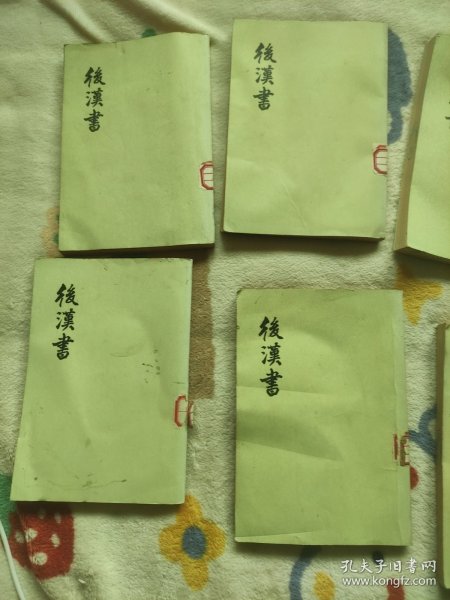 後漢書
後漢書
後漢書
後漢書
孔夫子旧书网
www.kongfz.com